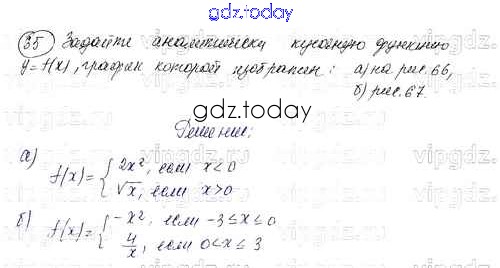 gdz.today
35 Задайте аналитически кусочную функцию
y=f(x), график которой изображён: а) на рис. 66,
б) рис. 67.
gdz.today
Решение:
а)
f(x)={ 2x², если x<0
√x, если x>0
б)
f(x)={ -x², если -3≤x≤0
4/x, если 0<x≤3